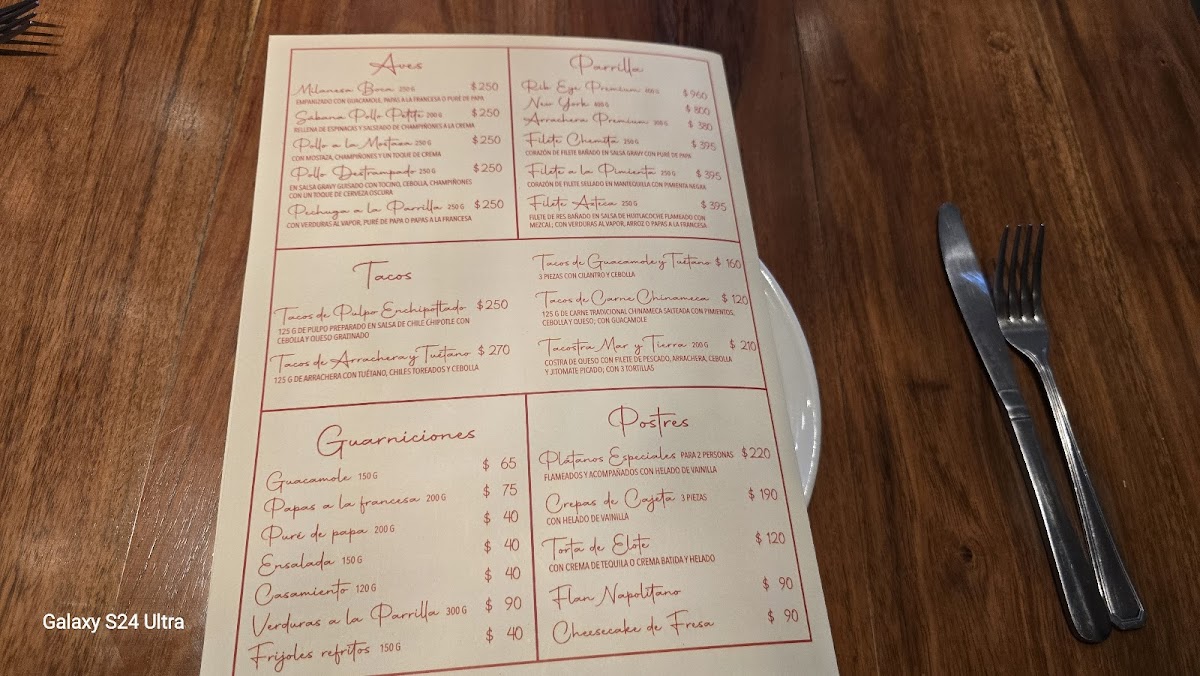 Aves
Milanesa Boca 250 G $250
EMPANIZADO CON GUACAMOLE, PAPAS A LA FRANCESA O PURÉ DE PAPA
Sábana Pollo Petite 200 G $250
RELLENA DE ESPINACAS Y SALSEADO DE CHAMPIÑONES A LA CREMA
Pollo a la Mostaza 250 G $250
CON MOSTAZA, CHAMPIÑONES Y UN TOQUE DE CREMA
Pollo Destrampado 250 G $250
EN SALSA GRAVY GUISADO CON TOCINO, CEBOLLA, CHAMPIÑONES
CON UN TOQUE DE CERVEZA OSCURA
Pechuga a la Parrilla 250 G $250
CON VERDURAS AL VAPOR, PURÉ DE PAPA O PAPAS A LA FRANCESA
Parrilla
Rib Eye Premium 400 G $960
New York 400 G $800
Arrachera Premium 300 G $380
Filete Chemita 250 G $395
CORAZÓN DE FILETE BAÑADO EN SALSA GRAVY CON PURÉ DE PAPA
Filete a la Pimienta 250 G $395
CORAZÓN DE FILETE SELLADO EN MANTEQUILLA CON PIMIENTA NEGRA
Filete Azteca 250 G $395
FILETE DE RES BAÑADO EN SALSA DE HUITLACOCHE FLAMEADO CON
MEZCAL; CON VERDURAS AL VAPOR, ARROZ O PAPAS A LA FRANCESA
Tacos
Tacos de Pulpo Enchipotlado $250
125 G DE PULPO PREPARADO EN SALSA DE CHILE CHIPOTLE CON
CEBOLLA Y QUESO GRATINADO
Tacos de Arrachera y Tuétano $270
125 G DE ARRACHERA CON TUÉTANO, CHILES TOREADOS Y CEBOLLA
Tacos de Guacamole y Tuétano $160
3 PIEZAS CON CILANTRO Y CEBOLLA
Tacos de Carne Chinameca $120
125 G DE CARNE TRADICIONAL CHINAMECA SALTEADA CON PIMIENTOS,
CEBOLLA Y QUESO; CON GUACAMOLE
Tacostra Mar y Tierra 200 G $210
COSTRA DE QUESO CON FILETE DE PESCADO, ARRACHERA, CEBOLLA
Y JITOMATE PICADO; CON 3 TORTILLAS
Guarniciones
Guacamole 150 G $ 65
Papas a la francesa 200 G $ 75
Puré de papa 200 G $ 40
Ensalada 150 G $ 40
Casamiento 120 G $ 40
Verduras a la Parrilla 300 G $ 90
Frijoles refritos 150 G $ 40
Postres
Plátanos Especiales PARA 2 PERSONAS $220
FLAMEADOS Y ACOMPAÑADOS CON HELADO DE VAINILLA
Crepas de Cajeta 3 PIEZAS $190
CON HELADO DE VAINILLA
Torta de Elote $120
CON CREMA DE TEQUILA O CREMA BATIDA Y HELADO
Flan Napolitano $ 90
Cheesecake de Fresa $ 90
Galaxy S24 Ultra